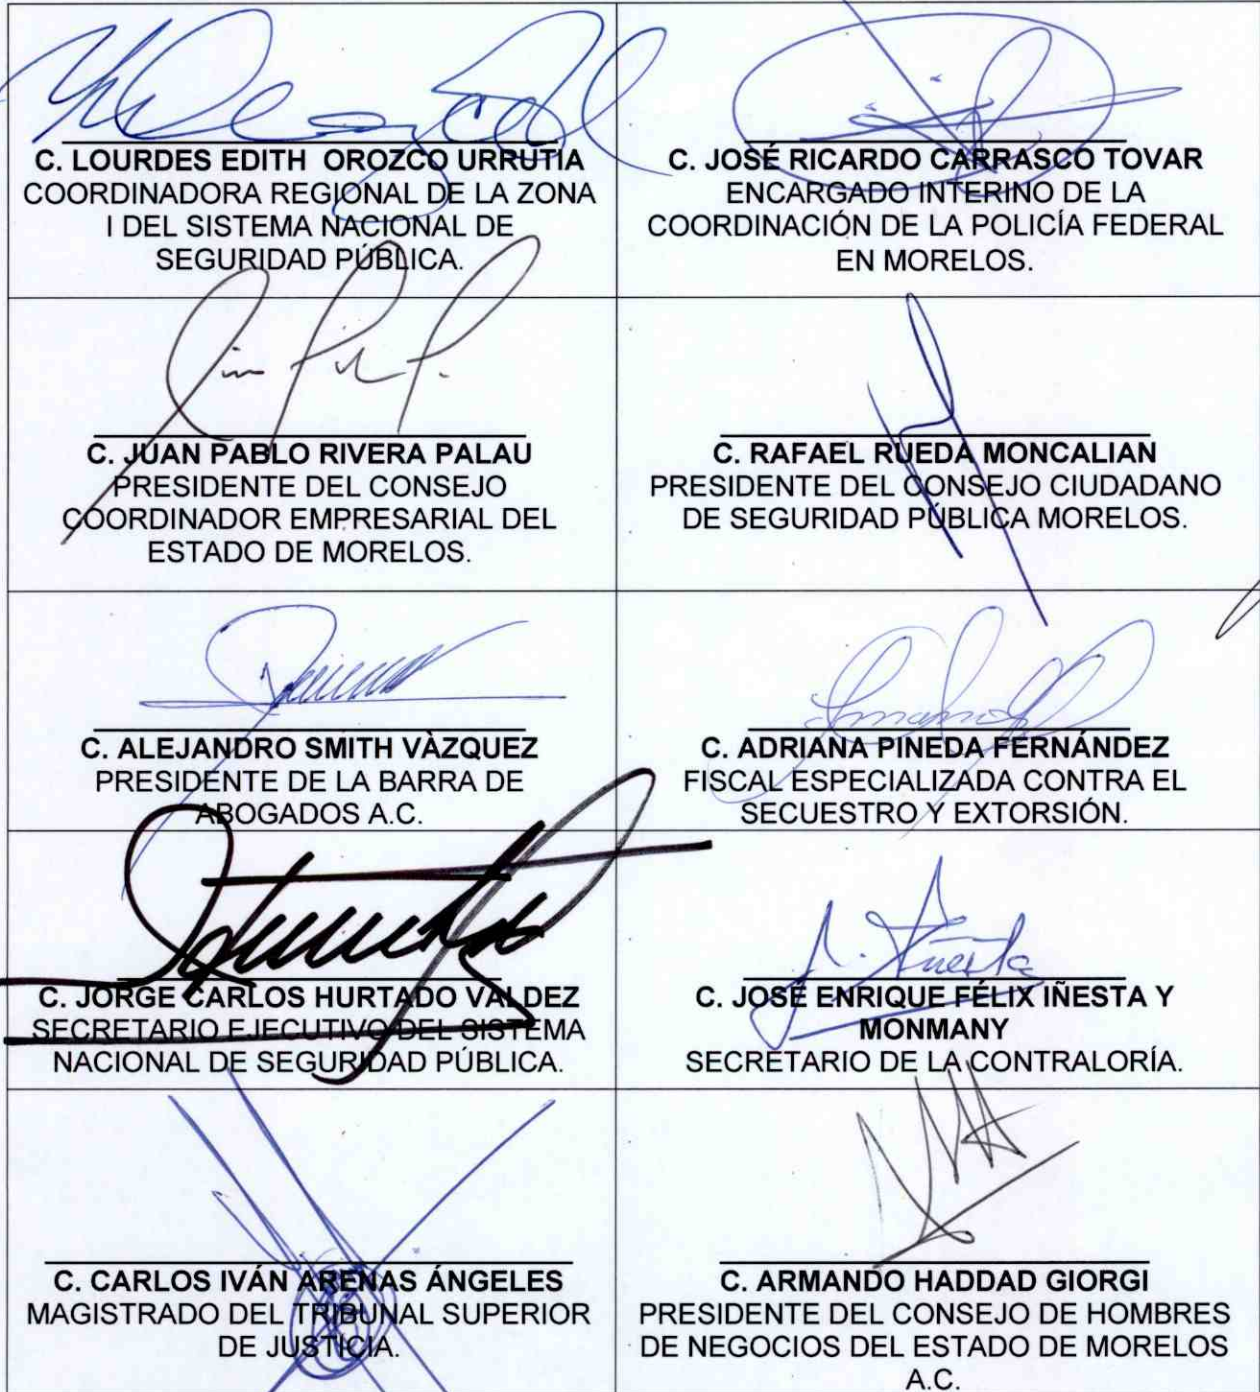 C. LOURDES EDITH OROZCO URRUTIA
COORDINADORA REGIONAL DE LA ZONA
I DEL SISTEMA NACIONAL DE
SEGURIDAD PÚBLICA.
C. JOSÉ RICARDO CARRASCO TOVAR
ENCARGADO INTERINO DE LA
COORDINACIÓN DE LA POLICÍA FEDERAL
EN MORELOS.
C. JUAN PABLO RIVERA PALAU
PRESIDENTE DEL CONSEJO
COORDINADOR EMPRESARIAL DEL
ESTADO DE MORELOS.
C. RAFAEL RUEDA MONCALIAN
PRESIDENTE DEL CONSEJO CIUDADANO
DE SEGURIDAD PÚBLICA MORELOS.
C. ALEJANDRO SMITH VÀZQUEZ
PRESIDENTE DE LA BARRA DE
ABOGADOS A.C.
C. ADRIANA PINEDA FERNÁNDEZ
FISCAL ESPECIALIZADA CONTRA EL
SECUESTRO Y EXTORSIÓN.
C. JORGE CARLOS HURTADO VALDEZ
SECRETARIO EJECUTIVO DEL SISTEMA
NACIONAL DE SEGURIDAD PÚBLICA.
C. JOSÉ ENRIQUE FÉLIX IÑESTA Y
MONMANY
SECRETARIO DE LA CONTRALORÍA.
C. CARLOS IVÁN ARENAS ÁNGELES
MAGISTRADO DEL TRIBUNAL SUPERIOR
DE JUSTICIA.
C. ARMANDO HADDAD GIORGI
PRESIDENTE DEL CONSEJO DE HOMBRES
DE NEGOCIOS DEL ESTADO DE MORELOS
A.C.